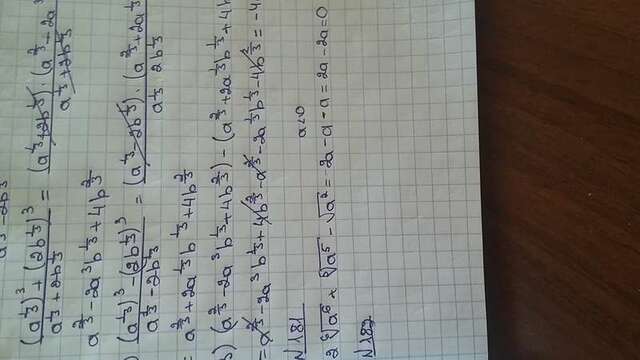 (a^⅓)³ + (2b^⅓)³ / a^⅓ + 2b^⅓ = (a^⅓ + 2b^⅓) · (a^⅔ - 2a³ / a^⅓ + 2b^⅓
a^⅔ - 2a³b^⅓ + 4b^⅔
) (a^⅓)³ - (2b^⅓)³ / a^⅓ - 2b^⅓ = (a^⅓ - 2b^⅓) · (a^⅔ + 2a^⅓ / a^⅓ 2b^⅓
= a^⅔ + 2a^⅓b^⅓ + 4b^⅔
3) (a^⅔ - 2a³b^⅓ + 4b^⅔) - (a^⅔ + 2a^⅓b^⅓ + 4b
= a^⅔ - 2a³b^⅓ + 4b^⅔ - a^⅔ - 2a^⅓b^⅓ - 4b^⅔ = -4
№181 a<0
- √a² = -2a - a - a = 2a - 2a = 0
№182